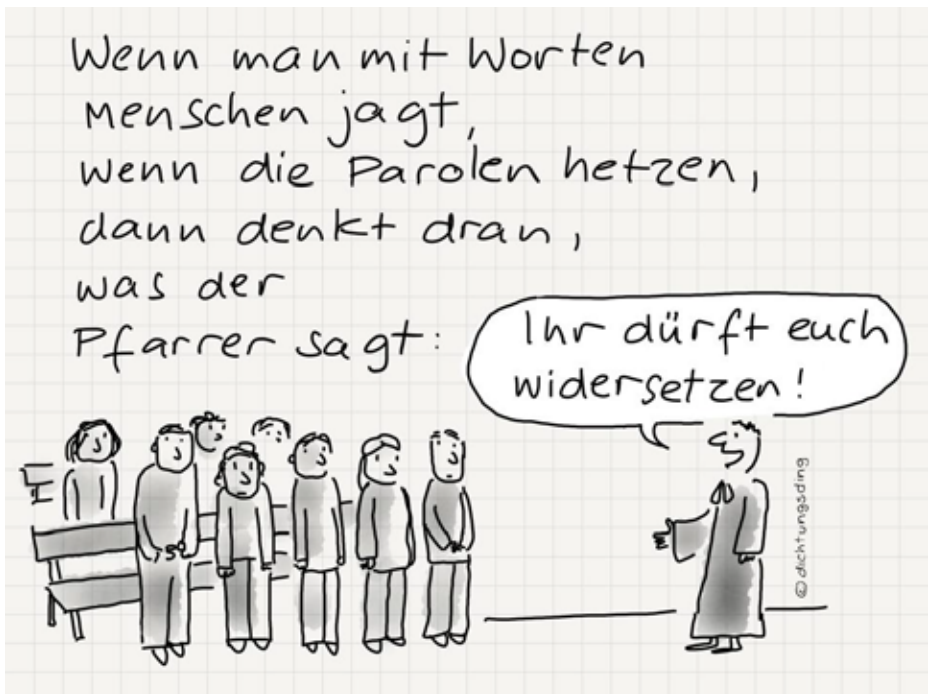 Wenn man mit Worten
Menschen jagt,
wenn die Parolen hetzen,
dann denkt dran,
was der
Pfarrer sagt:
Ihr dürft euch
widersetzen!
© dichtungsding